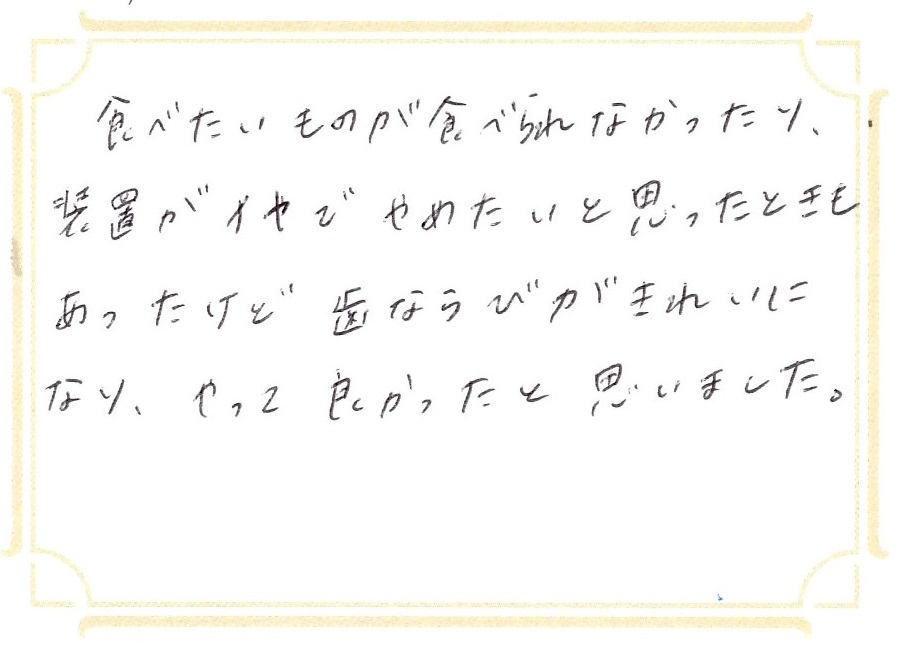 食べたいものが食べられなかったり、
装置がイヤでやめたいと思ったときも
あったけど歯ならびがきれいに
なり、やって良かったと思いました。